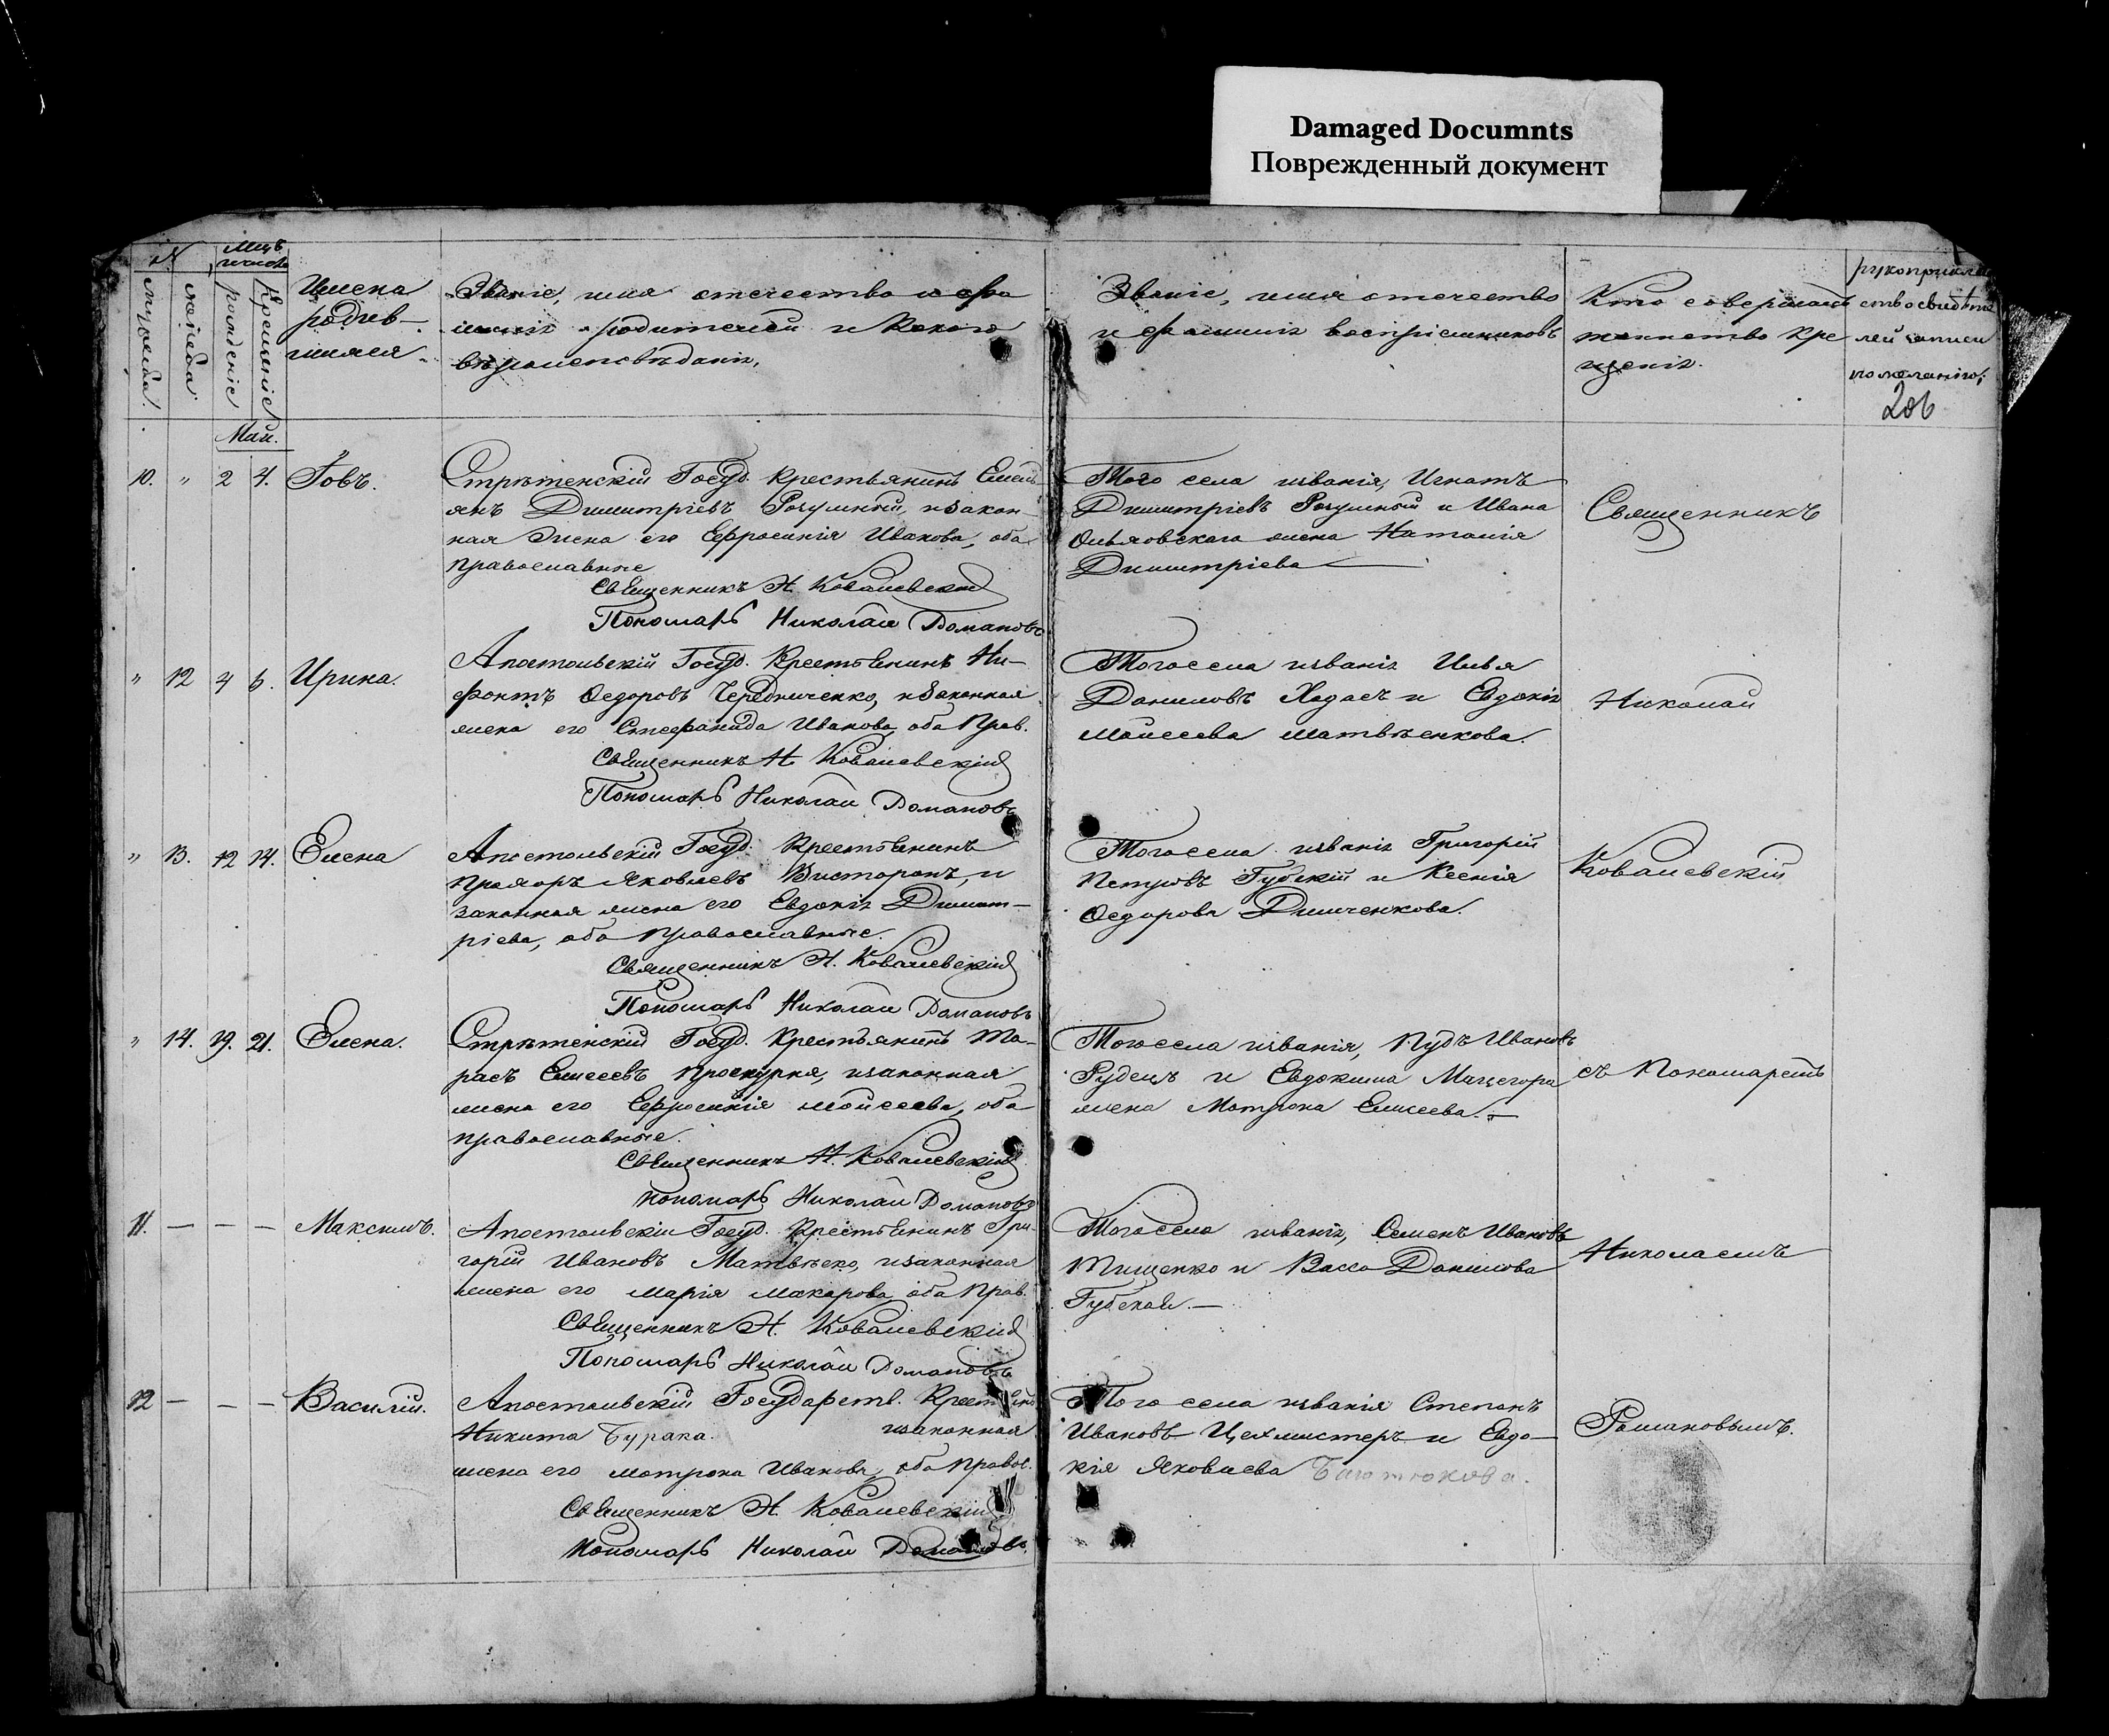 Damaged Documnts
Поврежденный документ
№
Мцъ
число
мужеска.
женска
рожденіе
крещеніе
Имена
родив-
шихся.
Званіе, имя отечество и фа
милія родителей и какого
вѣроисповѣданія,
Званіе, имя отечество
и фамилія воспріемниковъ
Кто совершалъ
таинство кре
щенія.
рукоприклад
ство свидѣте
лей записи
по желанію.
206
Май.
10. " 2 4. Іовъ.
Стрѣтенскій Госуд. Крестьянинъ Емель
янъ Димитріевъ Розумный, и закон
ная жена его Ефросинія Иванова, оба
православные
Священникъ Н. Ковалевскій
Пономарь Николай Романовъ
Того села и званія, Игнатъ
Димитріевъ Розумный и Ивана
жена Наталія
Димитріева
Священникъ
" 12 4 6. Ирина.
Апостольскій Госуд. Крестьянинъ Ни-
фонтъ Ѳедоровъ Чередниченко, и законная
жена его Стефанида Иванова, оба Прав.
Священникъ Н. Ковалевскій
Пономарь Николай Романовъ
Того села и званія Илья
Даниловъ Ходасъ и Евдокія
Моисеева Матвѣенкова.
Николай
" 13. 12 14. Елена
Апостольскій Госуд. Крестьянинъ
Прохоръ Яковлевъ и
законная жена его Евдокія Димит-
ріева, оба православные.
Священникъ Н. Ковалевскій
Пономарь Николай Романовъ
Того села и званія Григорій
Петровъ Губскій и Ксенія
Ѳедорова Димченкова.
Ковалевскій
" 14. 19. 21. Елена.
Стрѣтенскій Госуд. Крестьянинъ Та-
расъ Елисеевъ Проскурня, и законная
жена его Ефросинія Моисеева, оба
православные.
Священникъ Н. Ковалевскій
Пономарь Николай Романовъ
Того села и званія, Пудъ Ивановъ
Руденъ и Евдокима Мацегора
жена Матрона Елисеева.-
съ Пономаремъ
11. — — — Максимъ.
Апостольскій Госуд. Крестьянинъ Гри-
горій Ивановъ Матвѣеко, и законная
жена его Марія Макарова, оба Прав.
Священникъ Н. Ковалевскій
Пономарь Николай Романовъ
Того села и званія, Семенъ Ивановъ
Тищенко и Васса Данилова
Губская.-
Николаемъ
12 — — — Василій.
Апостольскій Государств. Крестьянинъ
Никита Бурака. и законная
жена его Матрона Иванова, оба Правос.
Священникъ Н. Ковалевскій
Пономарь Николай Романовъ.
Того села и званія Степанъ
Ивановъ Цехмистеръ и Евдо-
кія Яковлева
Романовымъ.